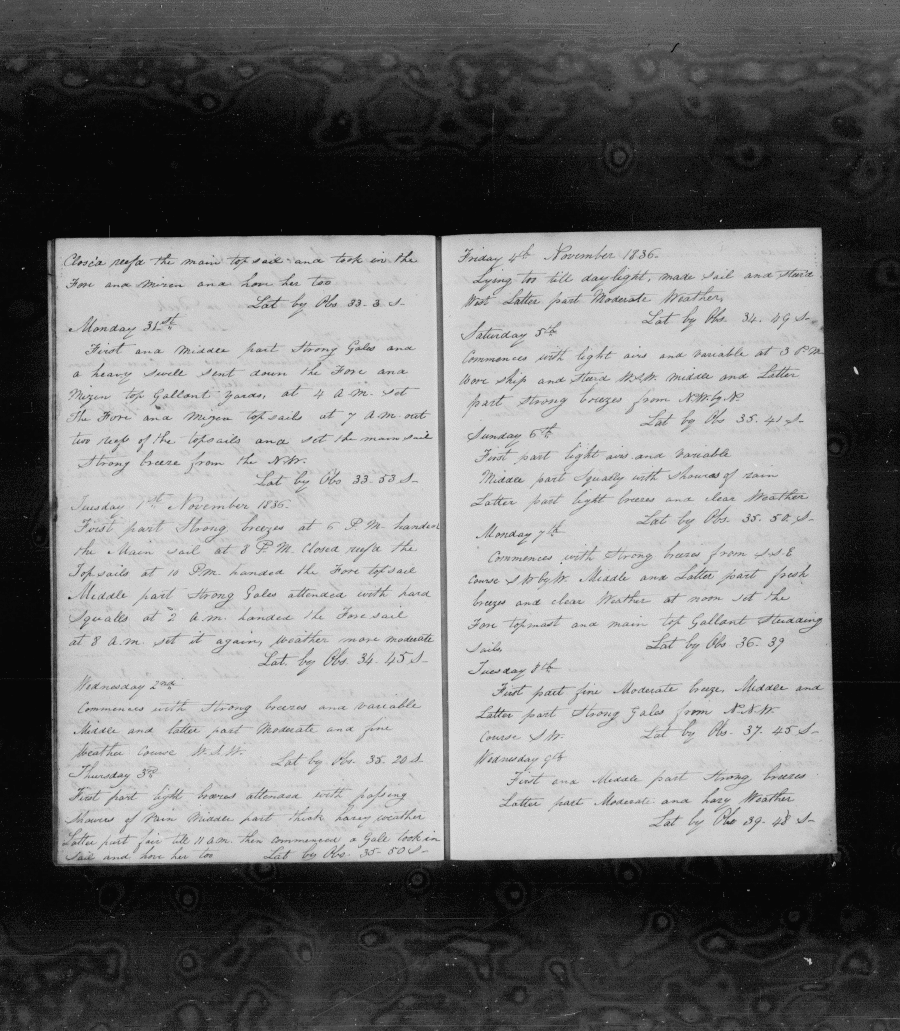 Closed reefd the main topsail and took in the
Fore and Mizen and hove her too
Lat by Obs 33. 3 S-
Monday 31st
First and Middle part Strong Gales and
a heavy swell sent down the Fore and
Mizen top Gallant yards, at 4 A.M. set
the Fore and Mizen topsails at 7 A.M. out
two reefs of the topsails and set the main sail
Strong breeze from the N.W.
Lat by Obs 33. 53 S-
Tuesday 1st November 1836.
First part Strong breezes at 6 P.M. handed
the Main sail at 8 P.M. Closed reefd the
Topsails at 10 P.M. handed the Fore topsail
Middle part Strong Gales attended with hard
Squalls at 2 a.m. handed the Fore sail
at 8 a.m. set it again, weather more moderate
Lat. by Obs. 34. 45 S-
Wednesday 2nd
Commences with Strong breezes and variable
Middle and latter part Moderate and fine
Weather Course W.S.W. Lat by Obs. 35. 20 S
Thursday 3rd
First part light breezes attended with passing
Showers of Rain Middle part thick hazey weather
Latter part fair till 11 a.m. then commenced a Gale took in
Sail and hove her too Lat by Obs. 35- 50 S-
Friday 4th November 1836.
Lying too till day light, made sail and steerd
West Latter part Moderate Weather,
Lat by Obs. 34. 49 S-
Saturday 5th
Commences with light airs and variable at 3 P.M.
Wore ship and steerd W.S.W. middle and Latter
part Strong breezes from N.W. by N.
Lat by Obs 35. 41 S-
Sunday 6th
First part light airs and variable
Middle part Squally with Showers of rain
Latter part light breezes and clear Weather
Lat by Obs. 35. 50. S-
Monday 7th
Commences with Strong breezes from S.S.E
Course S.W. by W. Middle and Latter part fresh
breezes and clear Weather at noon set the
Fore topmast and main top Gallant Studding
Sails Lat by Obs 36. 39
Tuesday 8th
First part fine Moderate breeze, Middle and
Latter part Strong Gales from N.N.W.
Course S.W. Lat by Obs. 37. 45 S-
Wednesday 9th
First and Middle part Strong breezes
Latter part Moderate and hazy Weather
Lat by Obs 39. 48 S-